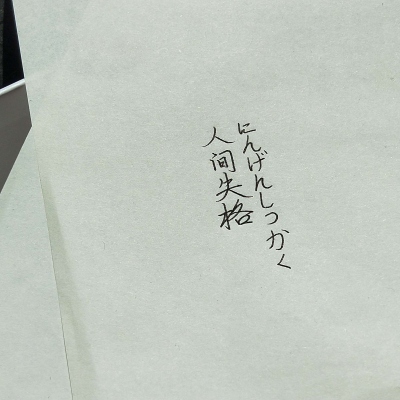 にんげんしつかく
人间失格